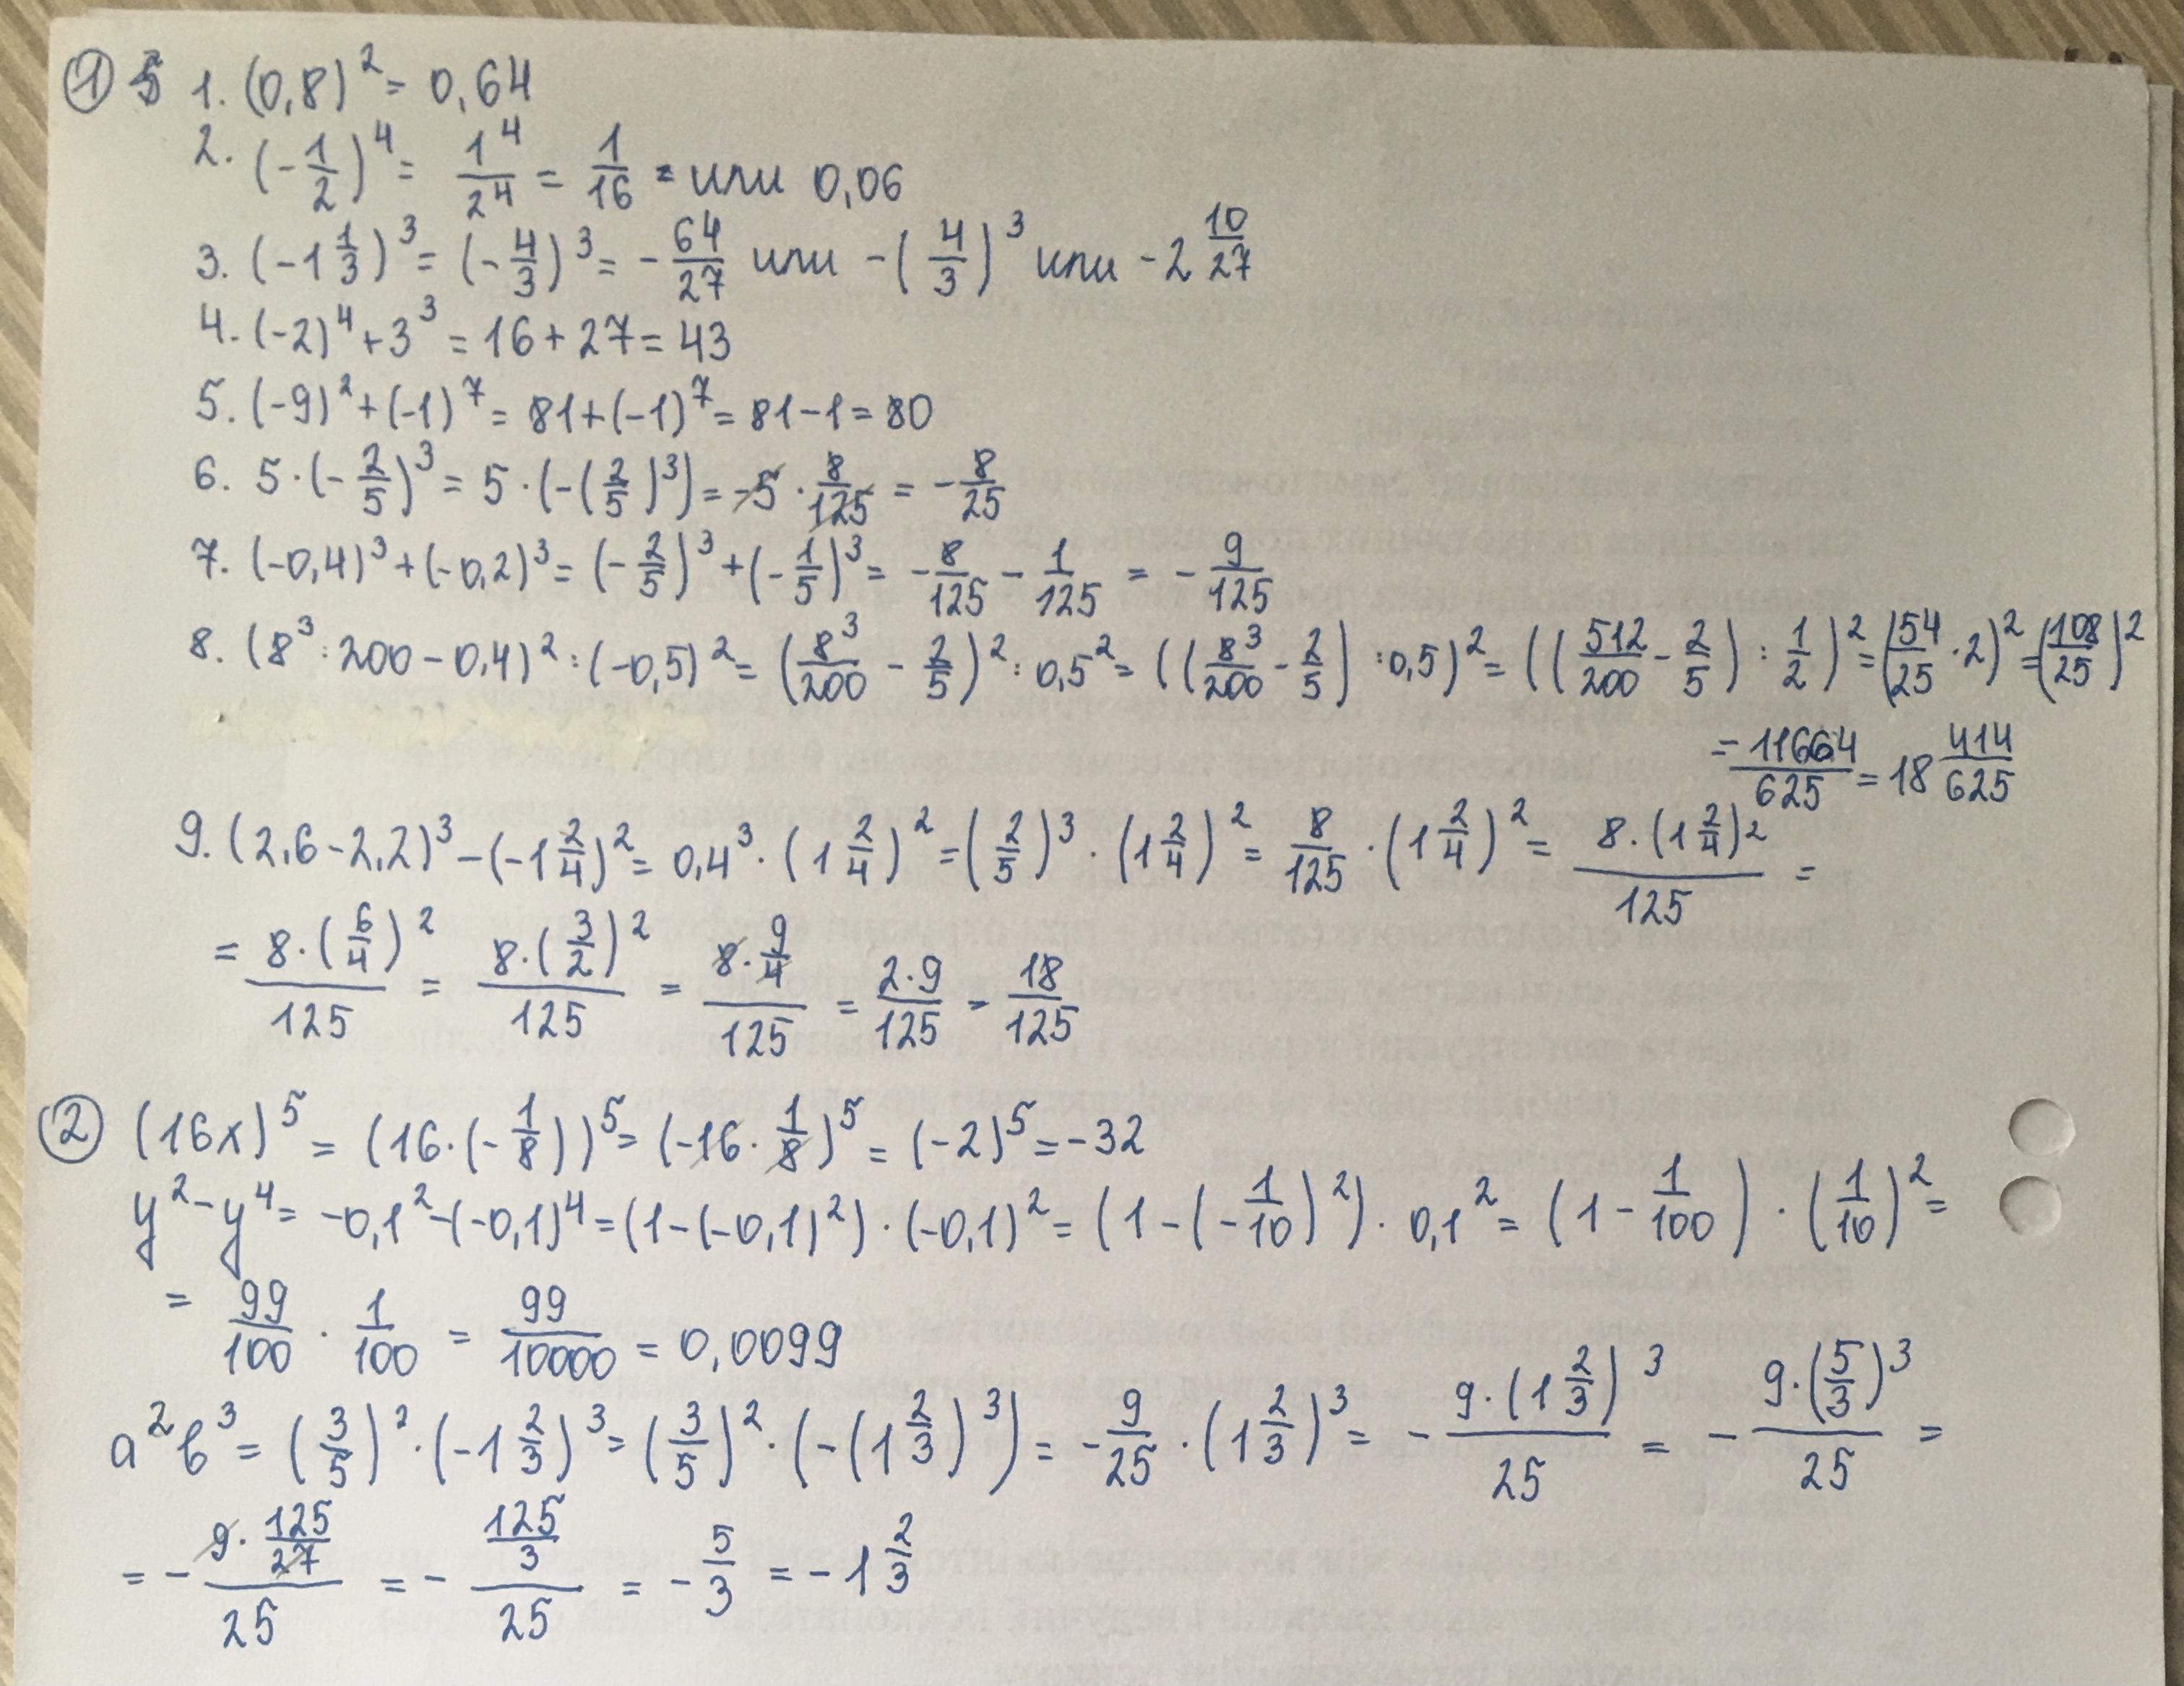 ① 5 1. (0,8)² = 0,64
2. (-1/2)⁴ = 1⁴/2⁴ = 1/16 = или 0,06
3. (-1 1/3)³ = (-4/3)³ = -64/27 или -(4/3)³ или -2 10/27
4. (-2)⁴ + 3³ = 16 + 27 = 43
5. (-9)² + (-1)⁷ = 81 + (-1)⁷ = 81 - 1 = 80
6. 5 · (-2/5)³ = 5 · (-(2/5)³) = -5 · 8/125 = -8/25
7. (-0,4)³ + (-0,2)³ = (-2/5)³ + (-1/5)³ = -8/125 - 1/125 = -9/125
8. (8³ : 200 - 0,4)² : (-0,5)² = (8³/200 - 2/5)² : 0,5² = ((8³/200 - 2/5) : 0,5)² = ((512/200 - 2/5) : 1/2)² = (54/25 · 2)² = (108/25)²
= 11664/625 = 18 414/625
9. (2,6 - 2,2)³ - (-1 2/4)² = 0,4³ · (1 2/4)² = (2/5)³ · (1 2/4)² = 8/125 · (1 2/4)² = 8 · (1 2/4)²/125 =
= 8 · (6/4)²/125 = 8 · (3/2)²/125 = 8 · 9/4/125 = 2 · 9/125 = 18/125
② (16x)⁵ = (16 · (-1/8))⁵ = (-16 · 1/8)⁵ = (-2)⁵ = -32
y² - y⁴ = -0,1² - (-0,1)⁴ = (1 - (-0,1)²) · (-0,1)² = (1 - (-1/10)²) · 0,1² = (1 - 1/100) · (1/10)² =
= 99/100 · 1/100 = 99/10000 = 0,0099
a²b³ = (3/5)² · (-1 2/3)³ = (3/5)² · (-(1 2/3)³) = -9/25 · (1 2/3)³ = - 9 · (1 2/3)³/25 = - 9 · (5/3)³/25 =
= - 9 · 125/27/25 = - 125/3/25 = -5/3 = -1 2/3